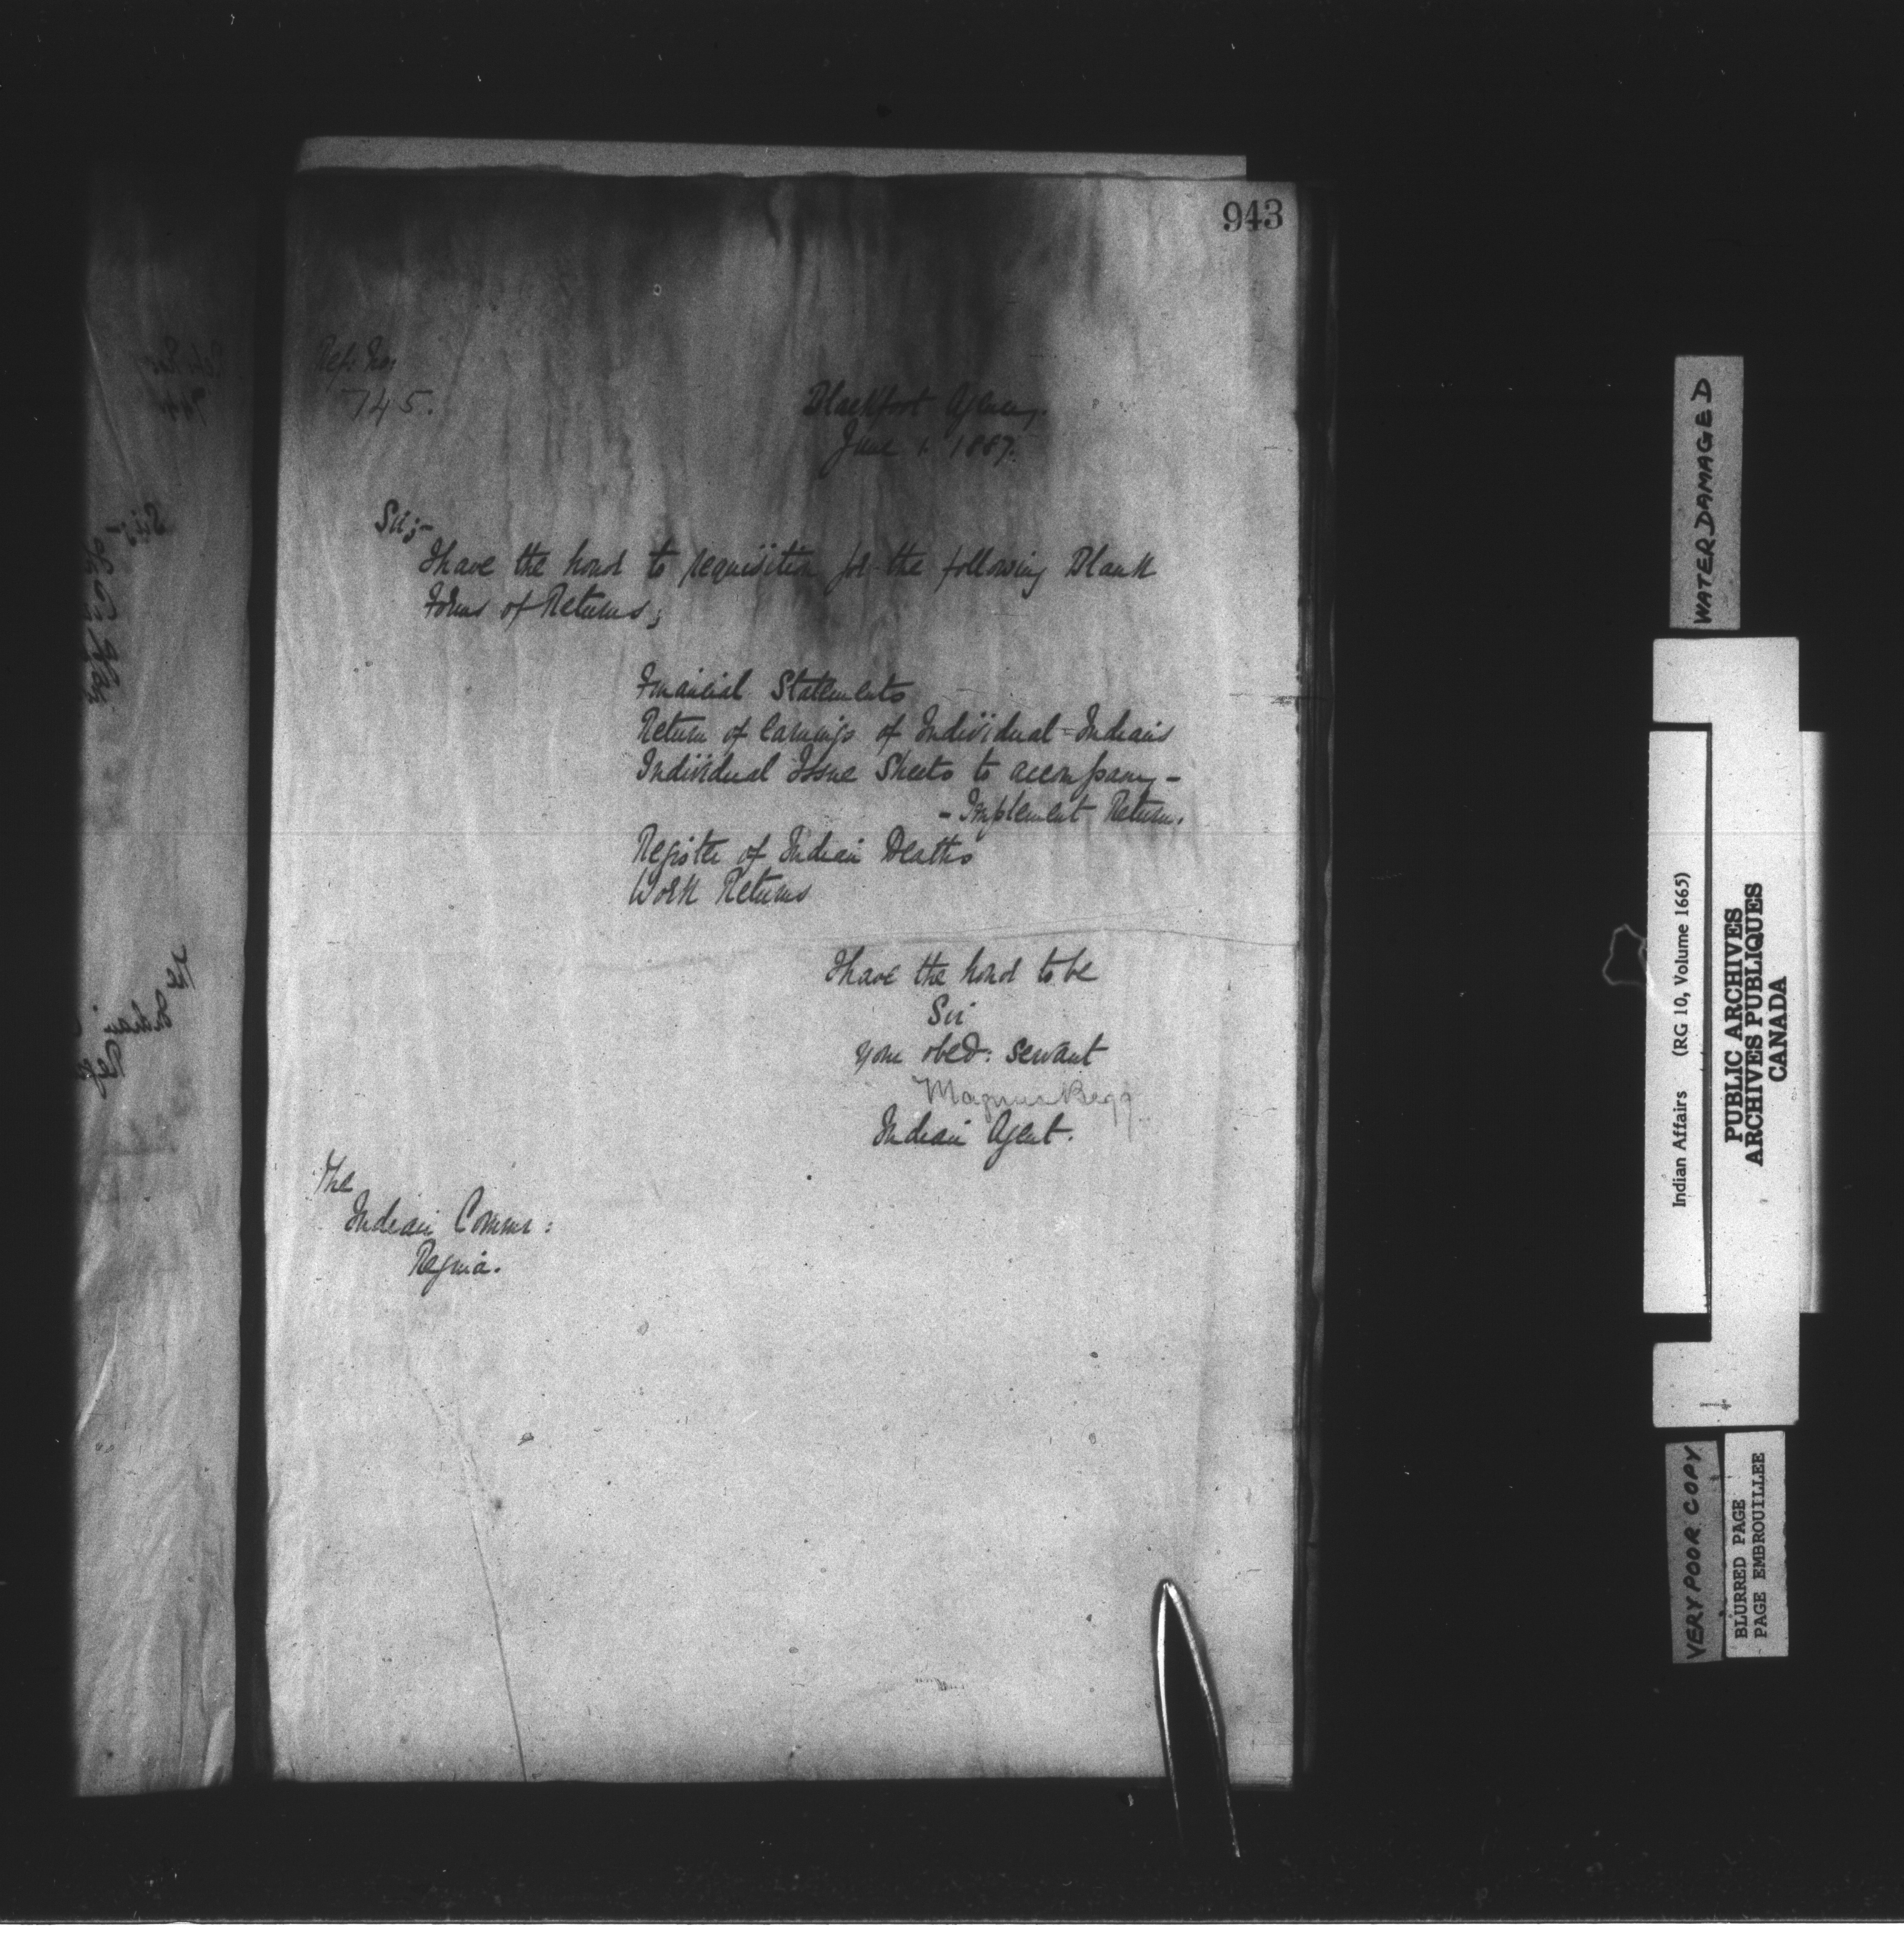 943
Ref: No:
745.
Blackfoot Agency.
June 1. 1887.
Sir;-
I have the honor to requisition for the following Blank
Forms of Returns;
Financial Statements
Return of Earnings of Individual Indians
Individual Issue Sheets to accompany -
- Implement Return.
Register of Indian Deaths
Work Returns
I have the honor to be
Sir
your obed: servant
Magnus Begg
Indian Agent.
The
Indian Commr:
Regina.
WATER DAMAGED
Indian Affairs (RG 10, Volume 1665)
PUBLIC ARCHIVES
ARCHIVES PUBLIQUES
CANADA
VERY POOR COPY
BLURRED PAGE
PAGE EMBROUILLEE